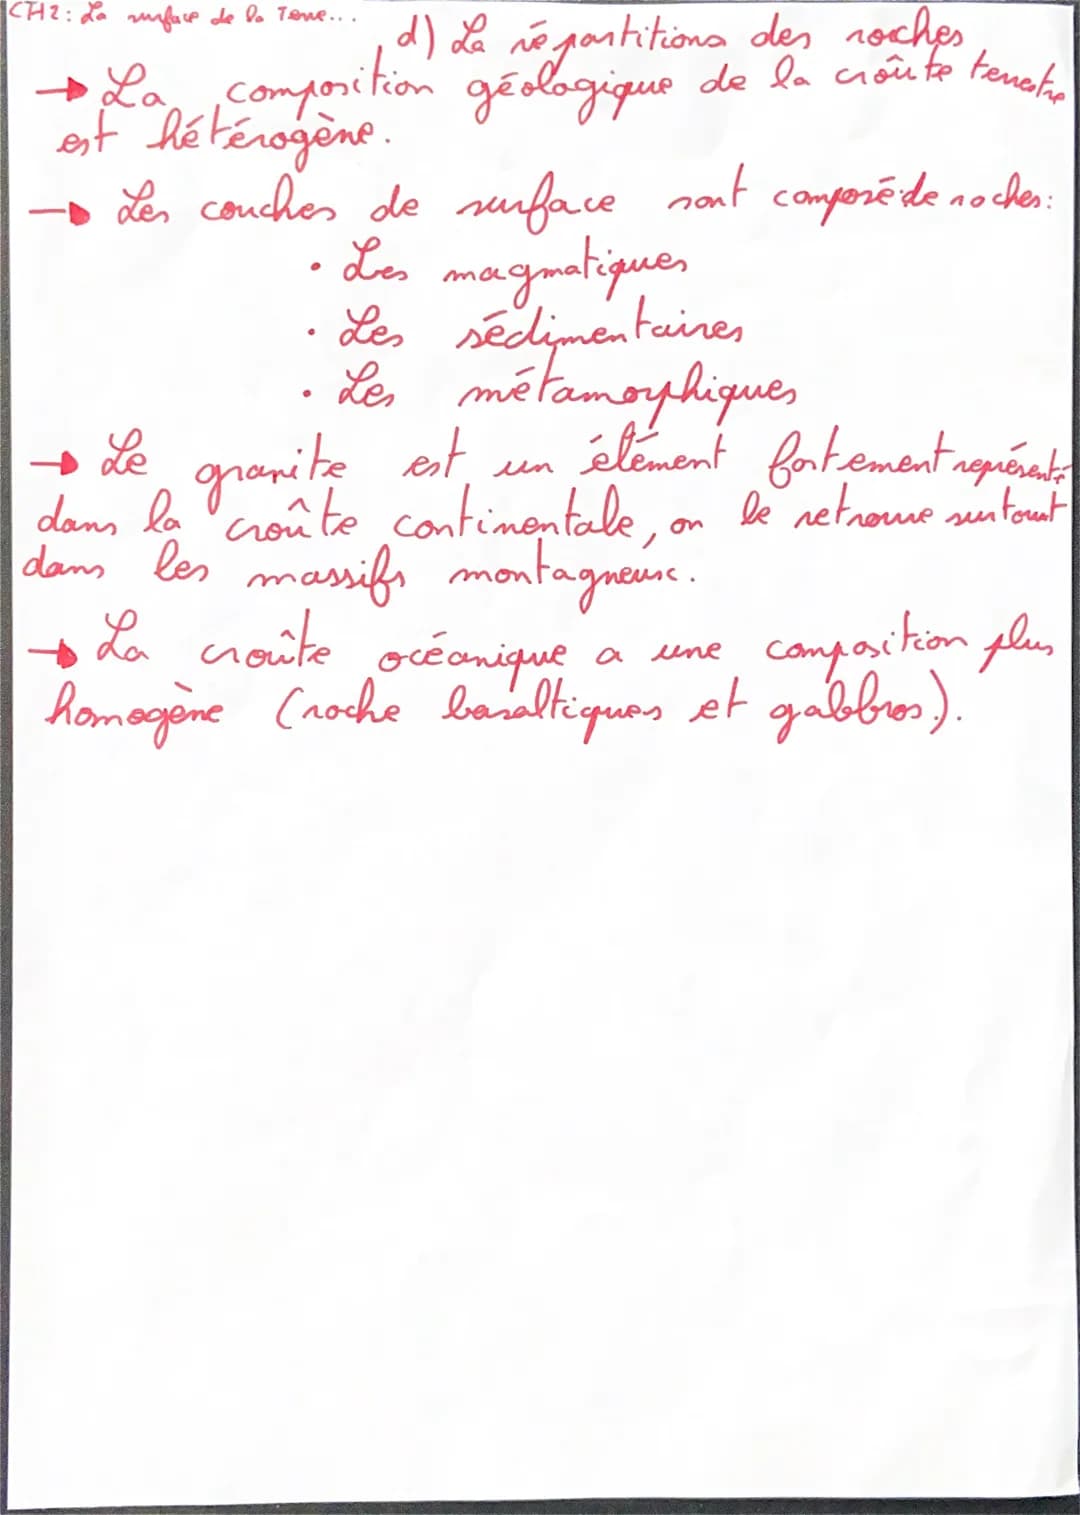 CH2: La surface de la Terre...
d) La répartitions des roches
→ La composition géologique de la croûte terrestre
est hétérogène.
→ Les couches de surface sont composé de roches:
• Les magmatiques
• Les sédimentaires
• Les métamorphiques
→ Le granite est un élément fortement représenté
dans la croûte continentale, on le retrouve surtout
dans les massifs montagneux.
→ La croûte océanique a une composition plus
homogène (roche basaltiques et gabbros).